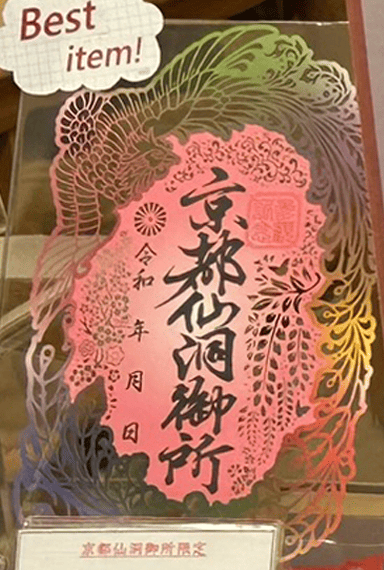 Best
item!
京都仙洞御所
令和 年 月 日
京都仙洞御所限定